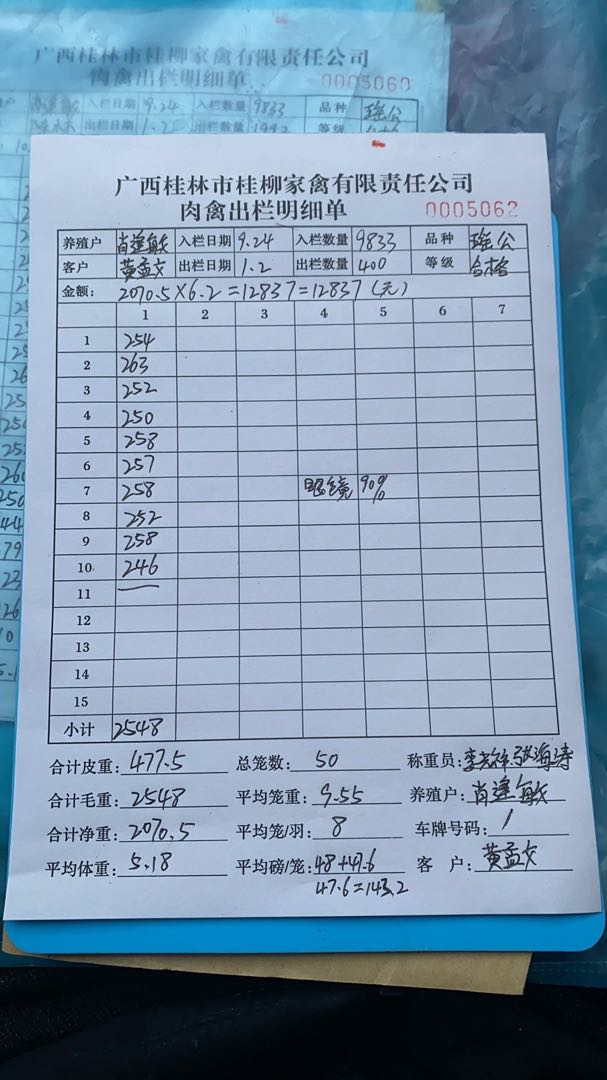 广西桂林市桂柳家禽有限责任公司
肉禽出栏明细单 0005060
入栏日期 9.24 入栏数量 9833 品种 瑶公
出栏日期 1.2 出栏数量 1992 等级 合格
广西桂林市桂柳家禽有限责任公司
肉禽出栏明细单 0005062
养殖户 肖逢敏 入栏日期 9.24 入栏数量 9833 品种 瑶公
客户 黄孟文 出栏日期 1.2 出栏数量 400 等级 合格
金额: 2070.5×6.2=12837=12837(元)
1 2 3 4 5 6 7
1 254
2 263
3 252
4 250
5 258
6 257
7 258 眼镜 90%
8 252
9 258
10 246
11
12
13
14
15
小计 2548
合计皮重: 477.5 总笼数: 50 称重员: 张海涛
合计毛重: 2548 平均笼重: 9.55 养殖户: 肖逢敏
合计净重: 2070.5 平均笼/羽: 8 车牌号码: /
平均体重: 5.18 平均磅/笼: 48+47.6 客户: 黄孟文
47.6=143.2